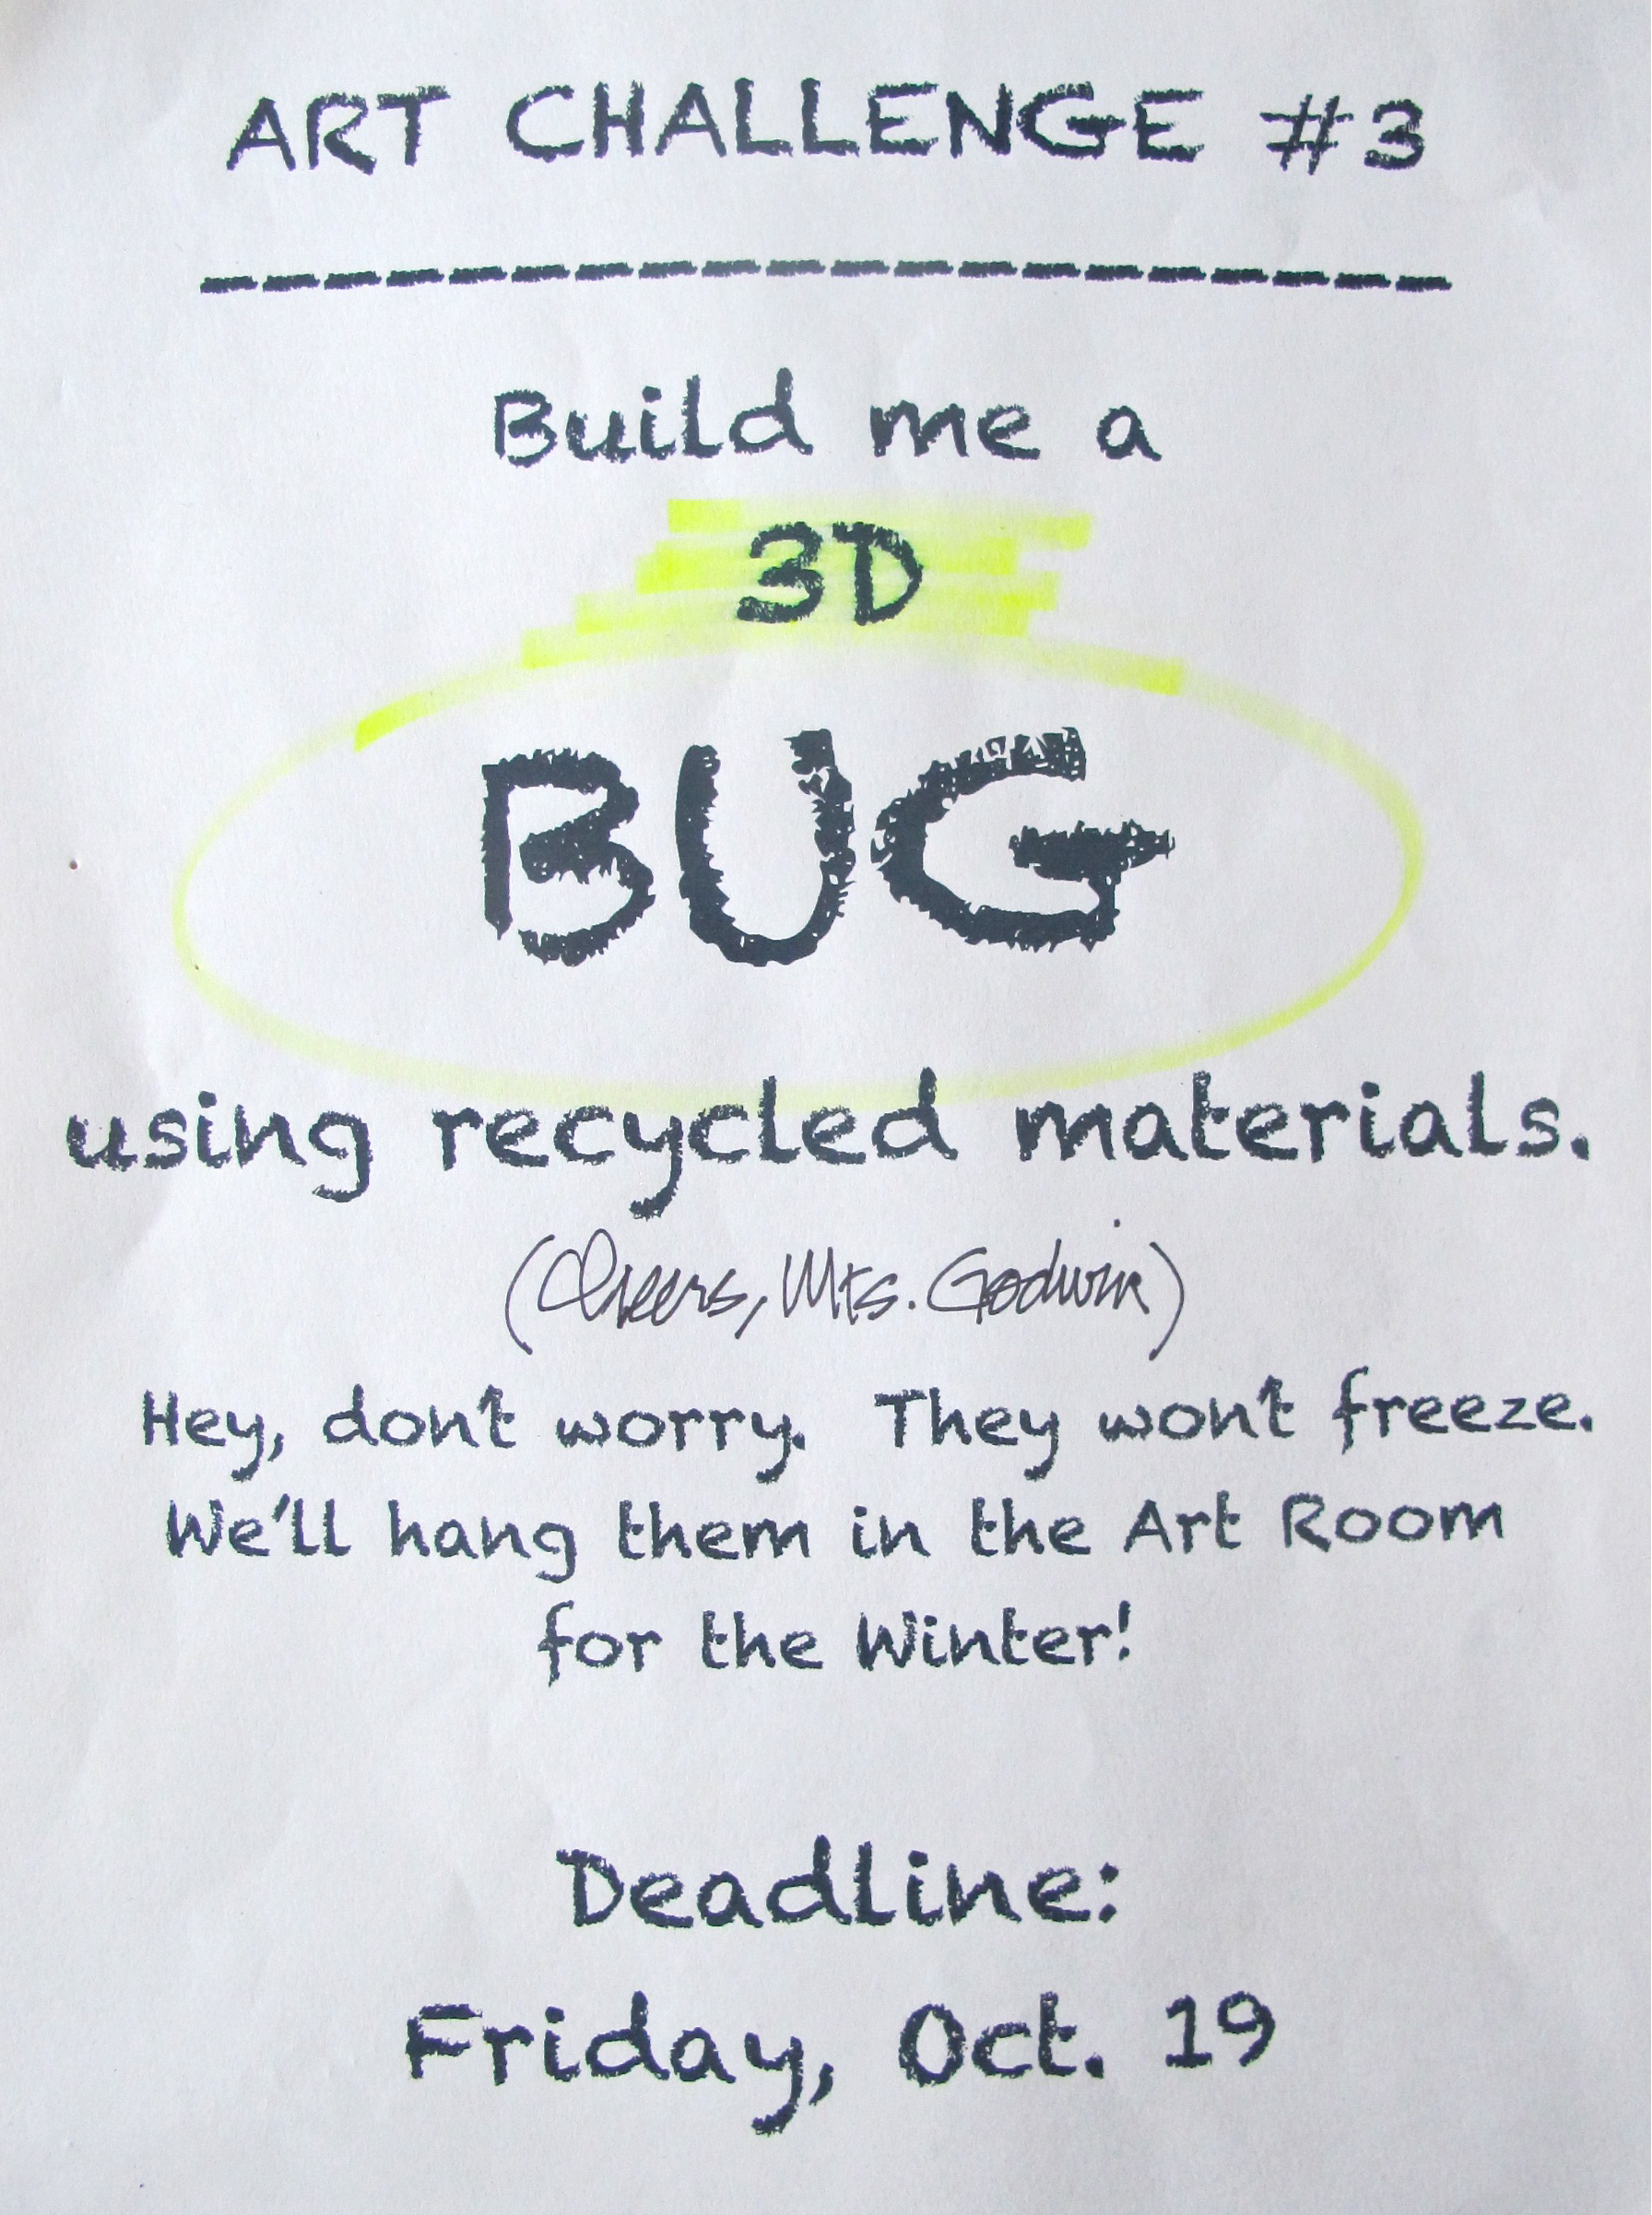 ART CHALLENGE #3
--------------------
Build me a
3D
BUG
using recycled materials.
(Cheers, Mrs. Godwin)
Hey, don't worry. They won't freeze.
We'll hang them in the Art Room
for the Winter!
Deadline:
Friday, Oct. 19